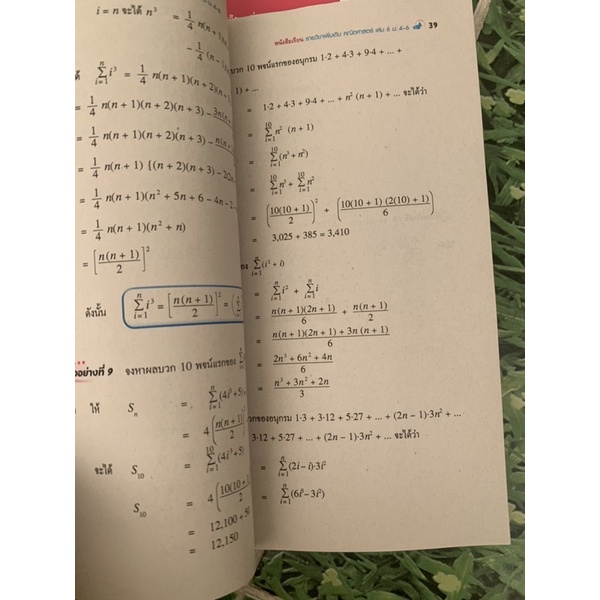 i = n จะได้ n³ = 1/4
- 1/4 (n
∑ⁿᵢ₌₁ i³ = 1/4 n(n + 1)(n + 2)(n
= 1/4 n(n + 1)(n + 2)(n + 3) - 3n(n
= 1/4 n(n + 1)(n + 2)(n + 3) - n(n
= 1/4 n(n + 1) {(n + 2)(n + 3) - 2(2n
= 1/4 n(n + 1)(n² + 5n + 6 - 4n - 2
= 1/4 n(n + 1)(n² + n)
= [n(n + 1)/2]²
ดังนั้น ∑ⁿᵢ₌₁ i³ = [n(n + 1)/2]² = (
อย่างที่ 9 จงหาผลบวก 10 พจน์แรกของ
ให้ Sₙ = ∑ⁿᵢ₌₁ (4i³ + 5)
= 4 (n(n + 1)/2
จะได้ S₁₀ = ∑¹⁰ᵢ₌₁ (4i³ + 5)
S₁₀ = 4 (10(10 +/2
= 12,100 + 50
= 12,150
หนังสือเรียน รายวิชาเพิ่มเติม คณิตศาสตร์ เล่ม 6 ม. 4-6 39
บวก 10 พจน์แรกของอนุกรม 1·2 + 4·3 + 9·4 + ... +
1) + ...
= 1·2 + 4·3 + 9·4 + ... + n² (n + 1) + ... จะได้ว่า
= ∑¹⁰ᵢ₌₁ n² (n + 1)
= ∑¹⁰ᵢ₌₁ (n³ + n²)
= ∑¹⁰ᵢ₌₁ n³ + ∑¹⁰ᵢ₌₁ n²
= (10(10 + 1)/2)² + (10(10 + 1) (2(10) + 1)/6)
= 3,025 + 385 = 3,410
ของ ∑ⁿᵢ₌₁ (i² + i)
= ∑ⁿᵢ₌₁ i² + ∑ⁿᵢ₌₁ i
= n(n + 1)(2n + 1)/6 + n(n + 1)/2
= n(n + 1)(2n + 1) + 3n (n + 1)/6
= 2n³ + 6n² + 4n/6
= n³ + 3n² + 2n/3
วกของอนุกรม 1·3 + 3·12 + 5·27 + ... + (2n - 1)·3n² + ...
3·12 + 5·27 + ... + (2n - 1)·3n² + ... จะได้ว่า
= ∑ⁿᵢ₌₁ (2i - i)·3i²
= ∑ⁿᵢ₌₁ (6i³ - 3i²)